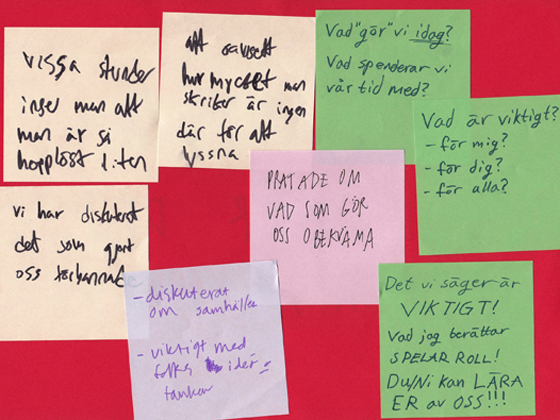 vissa stunder
inser man att
man är så
hopplöst liten
att oavsett
hur mycket man
skriker är ingen
där för att
lyssna
Vad "gör" vi idag?
Vad spenderar vi
vår tid med?
Vad är viktigt?
- för mig?
- för dig?
- för alla?
PRATADE OM
VAD SOM GÖR
OSS OBEKVÄMA
vi har diskuterat
det som gjort
oss förbannade
- diskuterat
om samhället
- viktigt med
folks idéer
tankar
Det vi säger är
VIKTIGT!
Vad jag berättar
SPELAR ROLL!
Du/Ni kan LÄRA
ER av OSS!!!